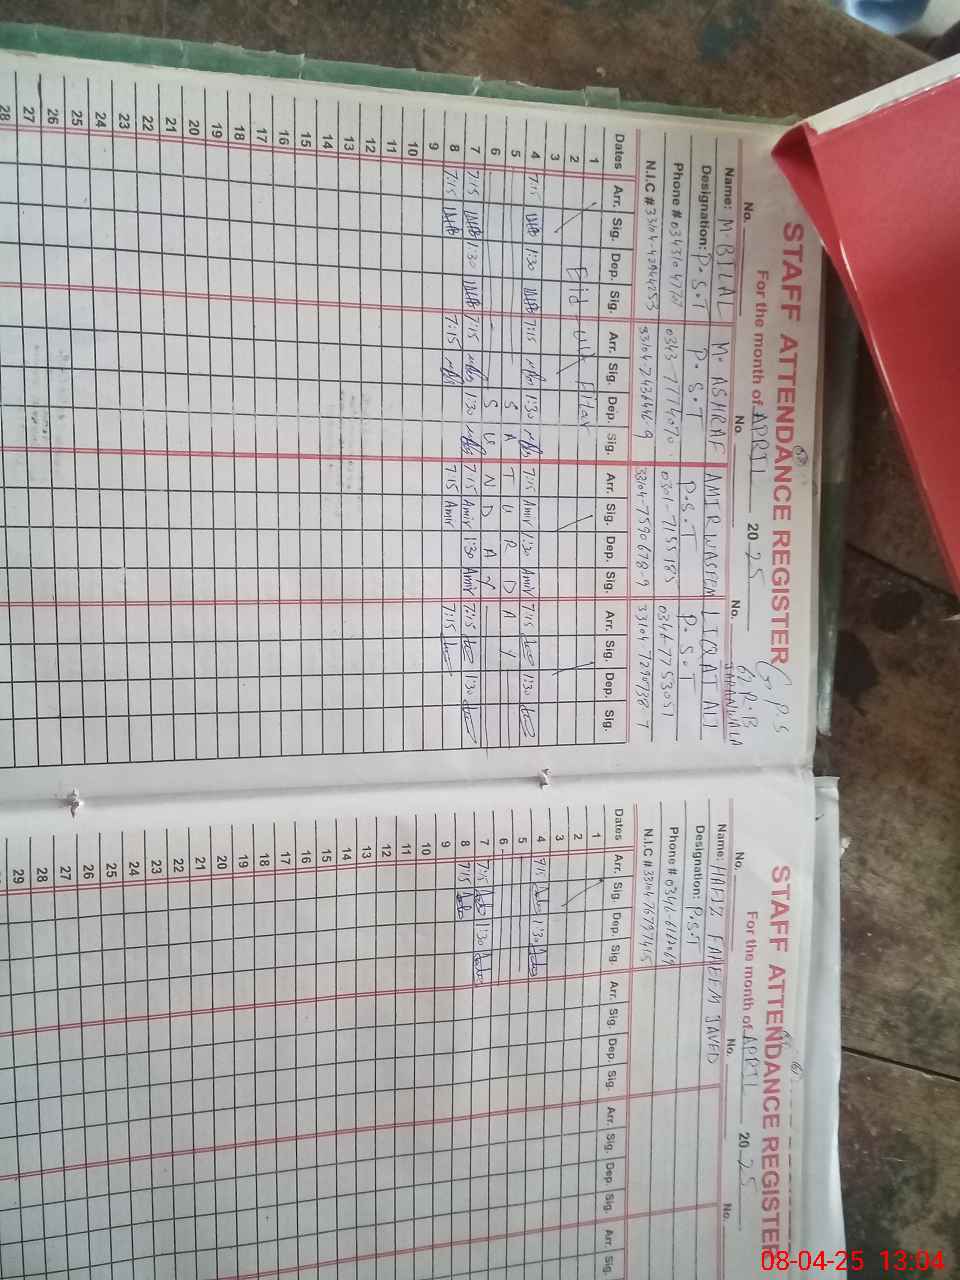 STAFF ATTENDANCE REGISTER
G.P.S
For the month of APRIL 2025
R.B
JARANWALA
No. No. No.
Name: M. BILAL M. ASHRAF AMIR WASEEM LIAQAT ALI
Designation: P.S.T P.S.T P.S.T P.S.T
Phone # 0343-7774070 0301-7155185 0346-7753051
N.I.C # 33104-7590678-9 33104-7290738-7
Dates Arr. Sig. Dep. Sig. Arr. Sig. Dep. Sig. Arr. Sig. Dep. Sig. Arr. Sig. Dep. Sig.
1
2 Eid ul Fitar
3
4 7:15 1:30 7:15 1:30 7:15 Amir 1:30 Amir 7:15 1:30
5 SATURDAY
6 SUNDAY
7 7:15 1:30 7:15 1:30 7:15 Amir 1:30 Amir 7:15 1:30
8 7:15 7:15 7:15 Amir 7:15
9
10
11
12
13
14
15
16
17
18
19
20
21
22
23
24
25
26
27
28
STAFF ATTENDANCE REGISTER
For the month of APRIL 2025
No. No. No.
Name: HAFIZ FAHEEM JAVED
Designation: P.S.T
Phone #
N.I.C #
Dates Arr. Sig. Dep. Sig. Arr. Sig. Dep. Sig. Arr. Sig. Dep. Sig. Arr. Sig.
1
2
3
4 7:15 1:30
5
6
7 7:15 1:30
8 7:15
9
10
11
12
13
14
15
16
17
18
19
20
21
22
23
24
25
26
27
28
29
08-04-25 13:04